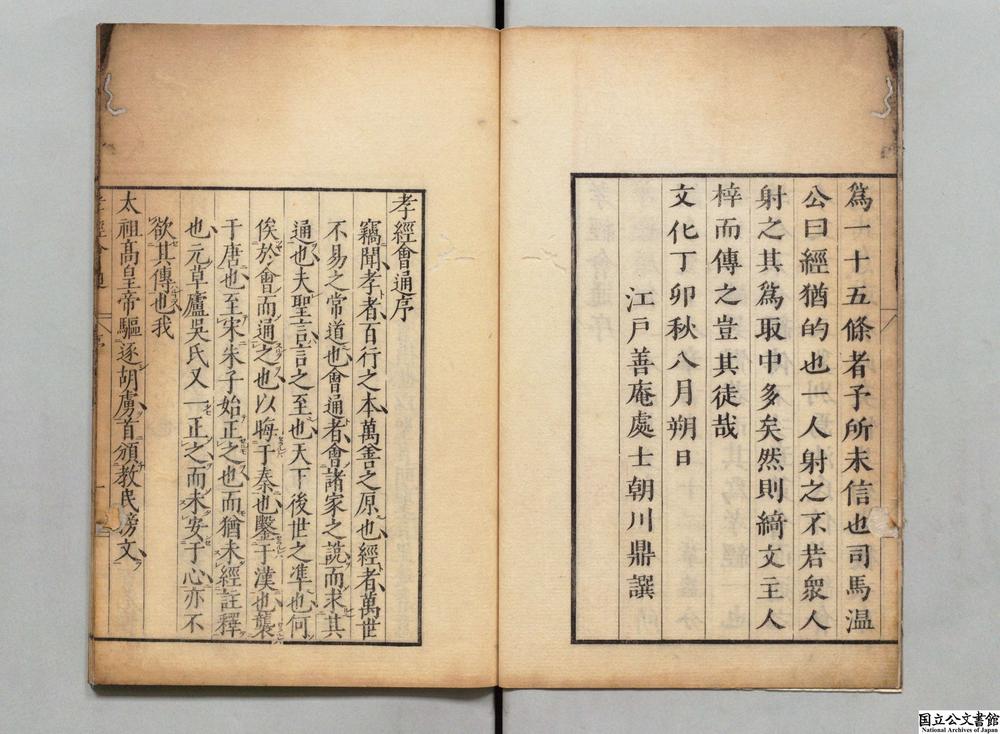 爲一十五條者予所未信也司馬温
公曰經猶的也一人射之不若衆人
射之其爲取中多矣然則綺文主人
梓而傳之豈其徒哉
文化丁卯秋八月朔日
江戸善庵處士朝川鼎譔
孝經會通序
竊聞孝者百行之本萬善之原也經者萬世
不易之常道也會通者會諸家之説而求其
通也夫聖言言之至也天下後世之準也何
俟於會而通之也以晦于秦也鑿于漢也襲
于唐也至宋朱子始正之也而猶未經註釋
也元草廬吳氏又一正之而未安于心亦不
欲其傳也我
太祖高皇帝驅逐胡虜首頒教民榜文
国立公文書館
National Archives of Japan